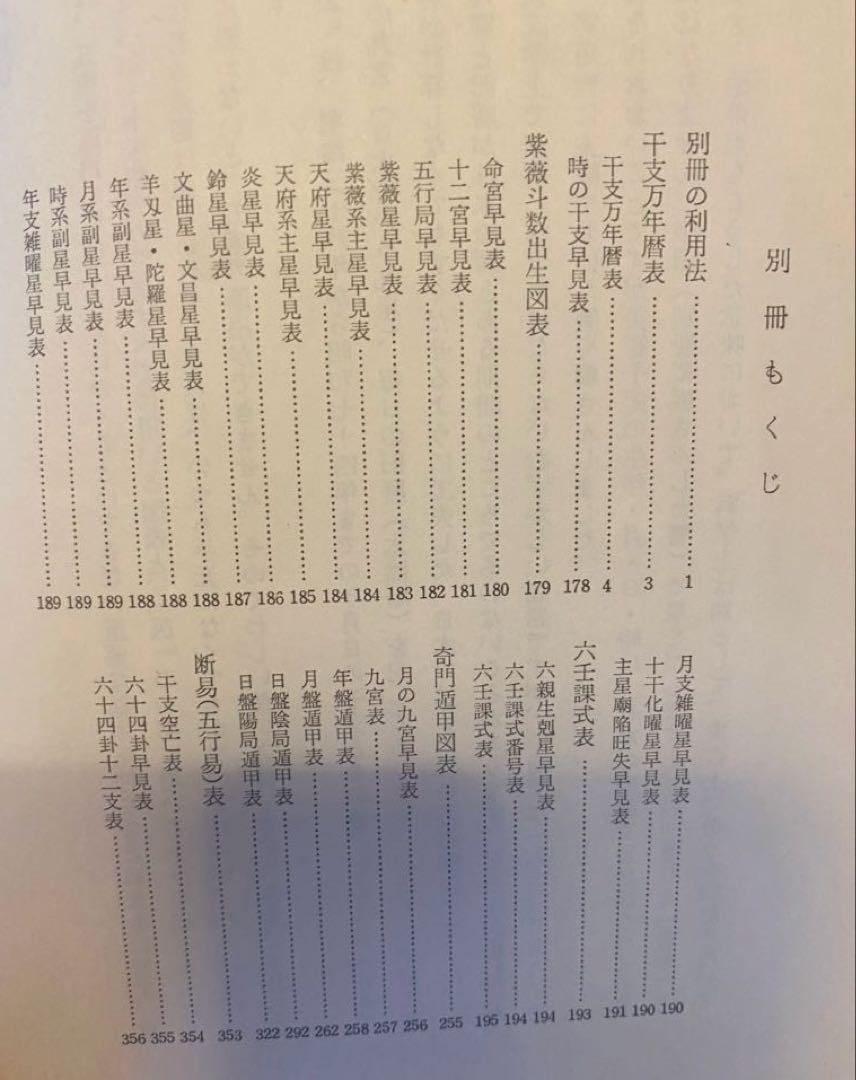 別冊もくじ
別冊の利用法……………1
干支万年暦表……………3
干支万年暦表……………4
時の干支早見表……………178
紫薇斗数出生図表……………179
命宮早見表……………180
十二宮早見表……………181
五行局早見表……………182
紫薇星早見表……………183
紫薇系主星早見表……………184
天府星早見表……………184
天府系主星早見表……………185
炎星早見表……………186
鈴星早見表……………187
文曲星・文昌星早見表……………188
羊刄星・陀羅星早見表……………188
年系副星早見表……………188
月系副星早見表……………189
時系副星早見表……………189
年支雑曜星早見表……………189
月支雑曜星早見表……………190
十干化曜星早見表……………190
主星廟陥旺失早見表……………191
六壬課式表……………193
六親生剋星早見表……………194
六壬課式番号表……………194
六壬課式表……………195
奇門遁甲図表……………255
月の九宮早見表……………256
九宮表……………257
年盤遁甲表……………258
月盤遁甲表……………262
日盤陰局遁甲表……………292
日盤陽局遁甲表……………322
断易(五行易)表……………353
干支空亡表……………354
六十四卦早見表……………355
六十四卦十二支表……………356